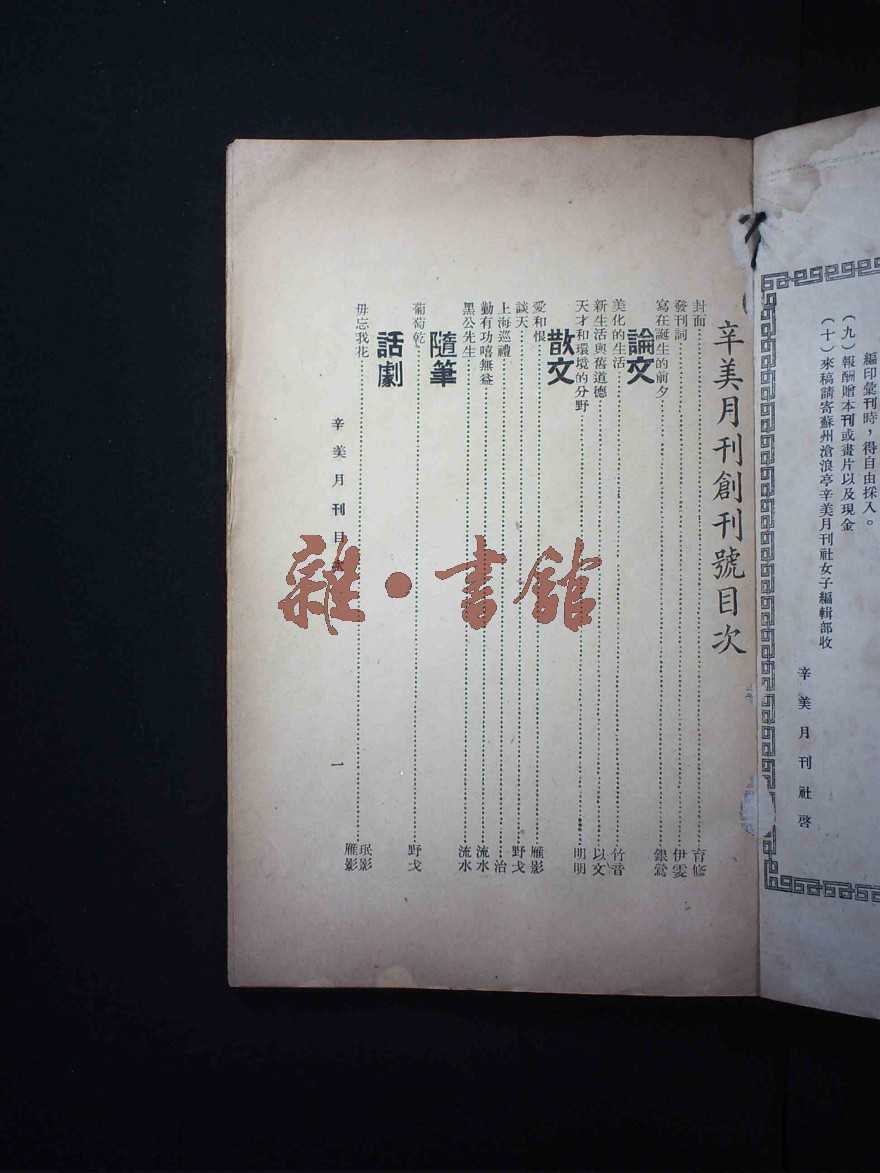 編印彙刊時，得自由採入。
（九）報酬贈本刊或畫片以及現金
（十）來稿請寄蘇州滄浪亭辛美月刊社女子編輯部收
辛美月刊社啓
辛美月刊創刊號目次
封面……育修
發刊詞……伊雯
寫在誕生的前夕……銀鶯
論文
美化的生活……竹音
新生活與舊道德……以文
天才和環境的分野……明明
散文
愛和恨……雁影
談天……野戈
上海巡禮……治
勤有功嘻無益……流水
黑公先生……流水
隨筆
葡萄乾……野戈
話劇
毋忘我花……珉影 雁影
辛美月刊目次
一
雜·書館